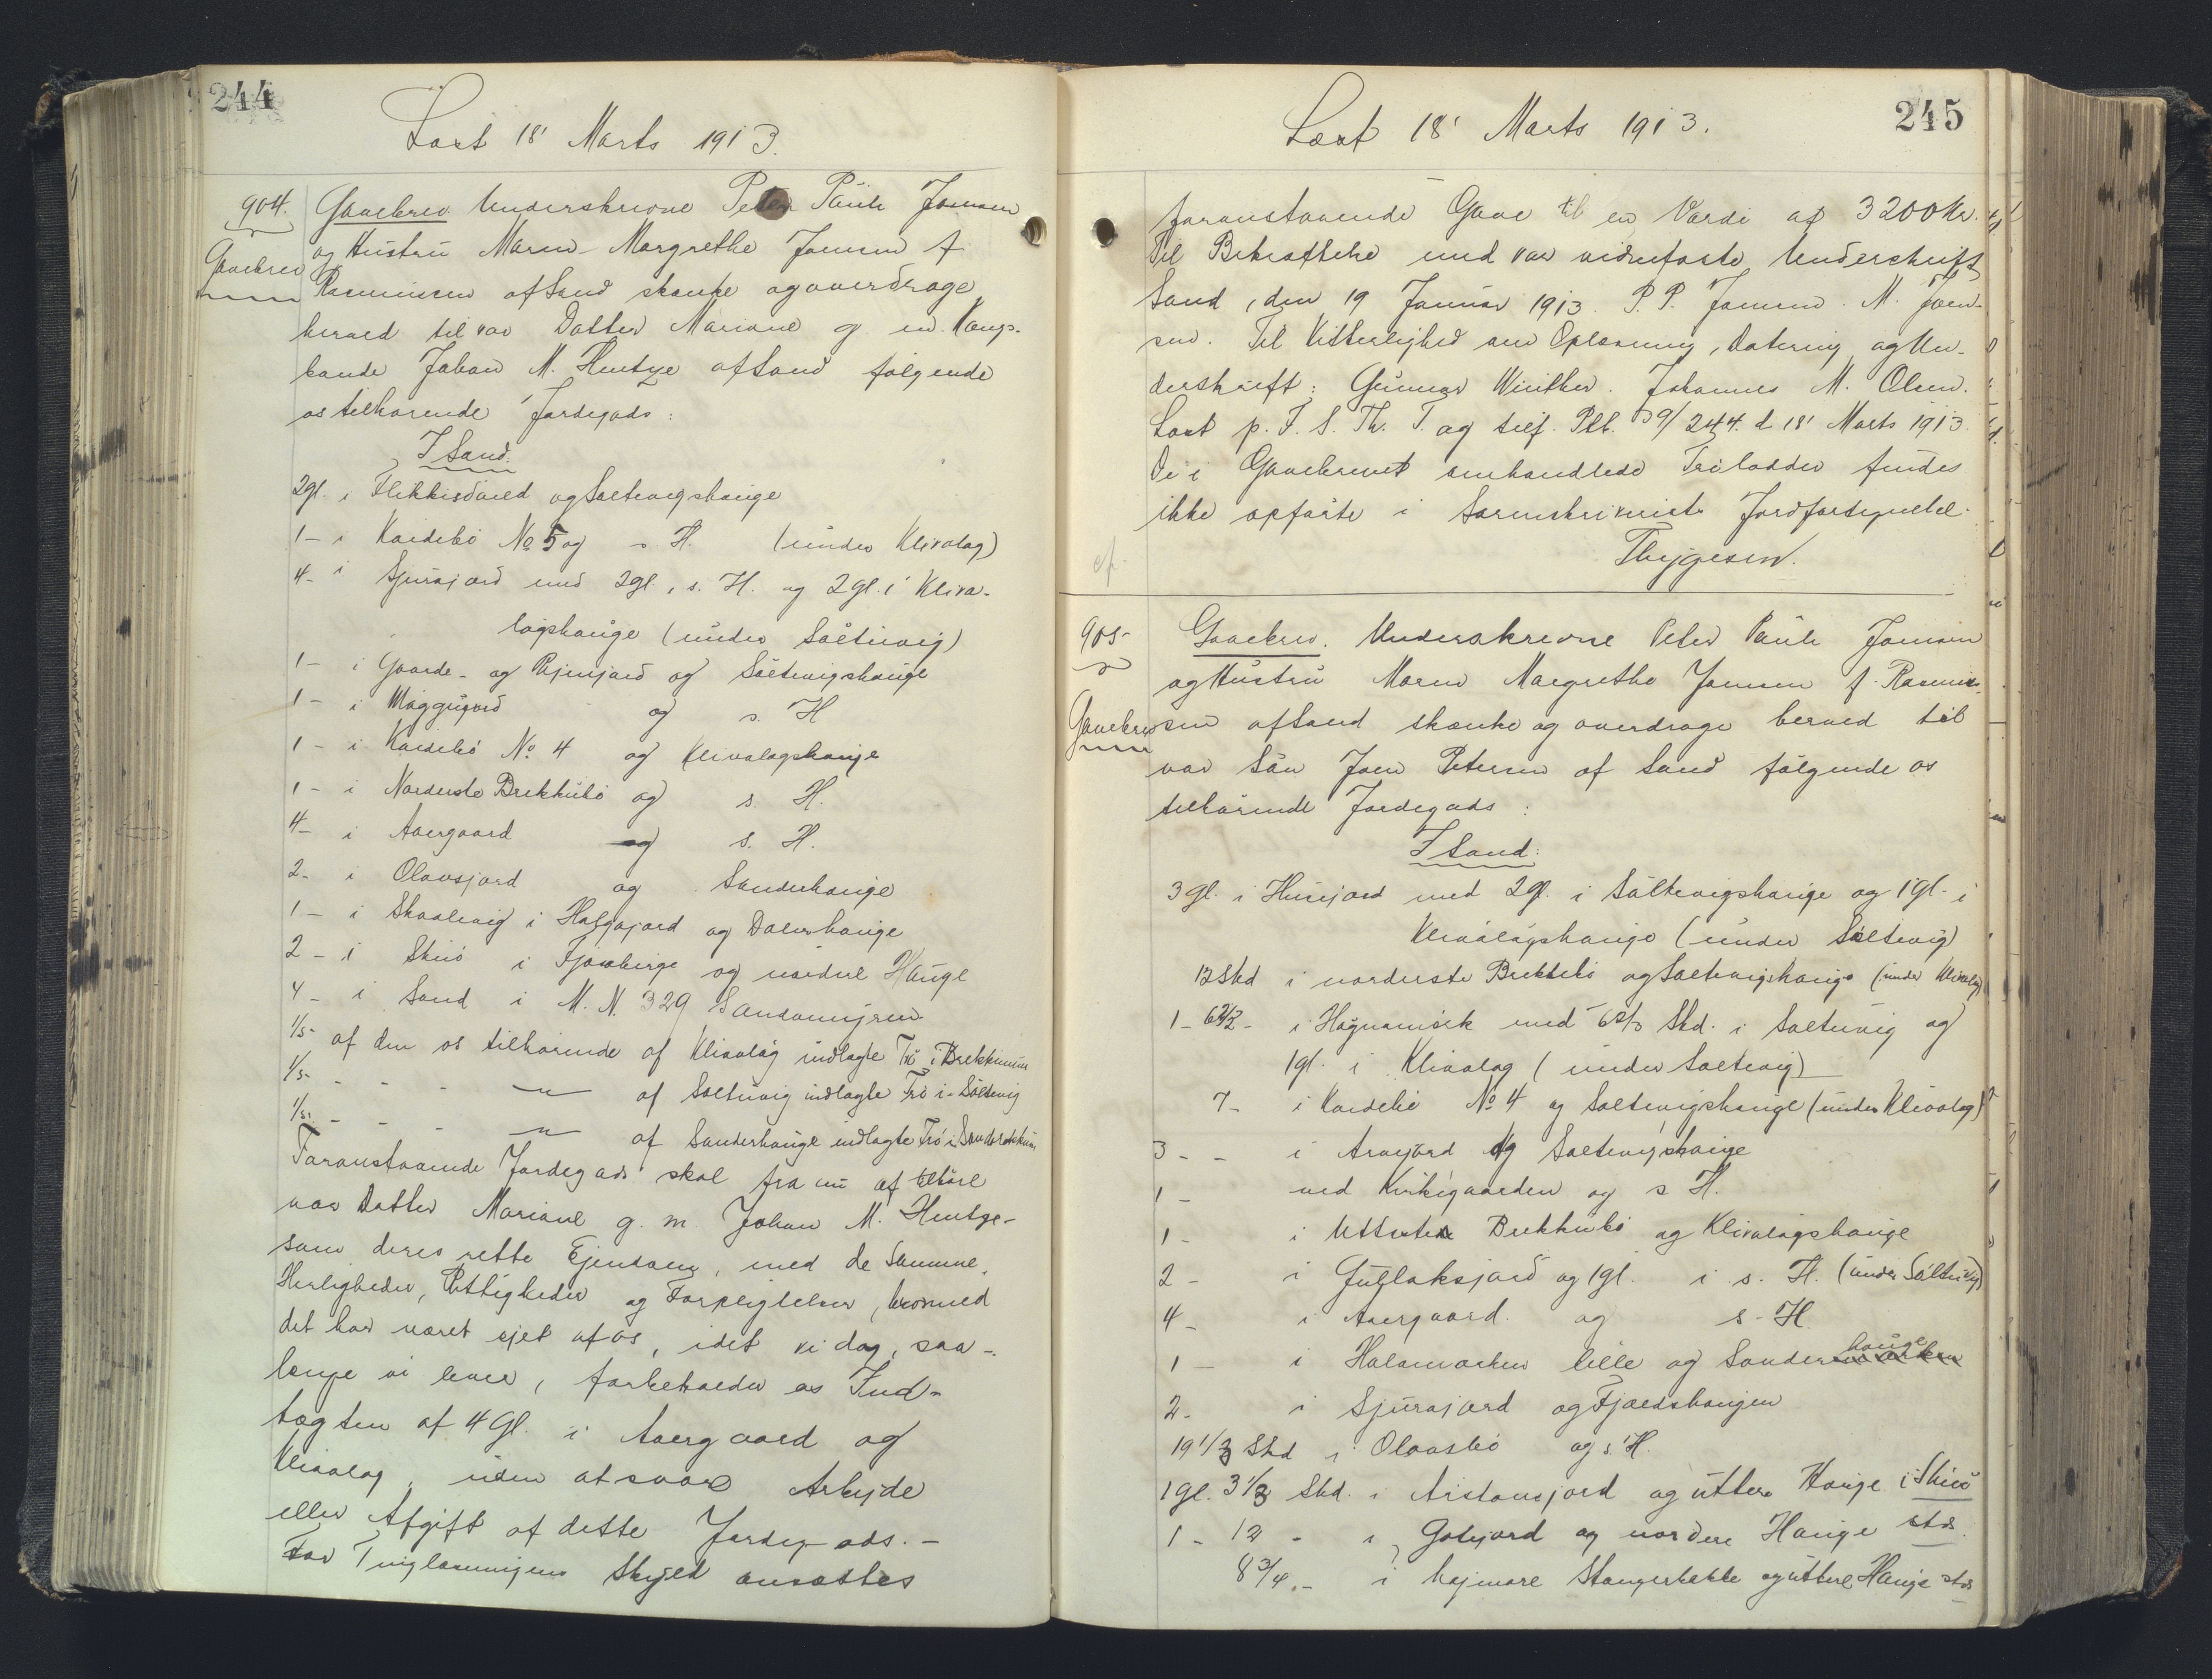 244
Læst 18' Marts 1913.
904. Gavebrev. Underskrevne Peter Paule Joensen
Gavebrev og Hustru Maren Margrethe Joensen f.
Rasmussen af Sand skænke og overdrage
herved til vor Datter Mariane g. m. Kongs-
bonde Johan M. Hentze af Sand følgende
os tilhørende Jordegods:
I Sand:
2 gl. i Flikkisdored og Søltuvigshauge
1 - i Kvidebø No 5 og s. H. (under Klivalag)
4 - i Sjurajord med 2 gl. i s. H. og 2 gl. i Kliva-
lagshauge (under Søltuvig)
1 - i Gaarde- og Pisujord og Søltuvigshauge
1 - i Maggujord og s. H
1 - i Kvidebø No. 4 og Klivalagshauge
1 - i Norderste Brekkubø og s. H.
4 - i Avergaard og s. H.
2 - i Olavsjord og Sanderhauge
1 - i Skaalevig i Halgajord og Dalerhauge
2 - i Skuø i Fjordberge og nordre Hauge
4 - i Sand i M. N. 329 Sandamyren
1/5 - af den os tilhørende af Klivalag indlagte Trø i Brekkunum
1/5 - - - - " - af Søltuvig indlagte Trø i Søltuvig
1/5 - - - - " - af Sanderhauge indlagte Trø i Sanderbrekkum
Foranstaaende Jordegods skal fra nu af tilhøre
vor Datter Mariane g. m. Johan M. Hentze
som deres rette Ejendom, med de Samme
Herligheder, Rettigheder og Forpligtelser, hvormed
det har været ejet af os, idet vi dog, saa-
længe vi lever, forbeholder os Ind-
tægten af 4 Gl. i Avergaard og
Klivalag, uden at svare Arbejde
eller Afgift af dette Jordegods. -
For Tinglæsningens Skyld ansættes
245
Læst 18' Marts 1913.
foranstaaende Gave til en Værdi af 3200 Kr.
Til Bekræftelse med vor vidnefaste Underskrift
Sand, den 19 Januar 1913. P. P. Joensen. M. Joen-
sen. Til Vitterlighed om Oplæsning, Datering og Un-
derskrift: Gunnar Winther. Johannes M. Olsen.
Læst p. F. S. Th. T. og tilf. Ptb. 9/244. d. 18' Marts 1913.
De i Gavebrevet omhandlede Trølodder findes
ikke opførte i Sorenskriveriets Jordfortegnelse.
Thygesen.
cf.
905. Gavebrev. Underskrevne Peter Paule Joensen
og Hustru Maren Margrethe Joensen f. Rasmus-
Gavebrev sen af Sand skænke og overdrage herved til
vor Søn Joen Petersen af Sand følgende os
tilhørende Jordegods:
I Sand:
3 gl. i Husejord med 2 gl. i Søltuvigshauge og 1 gl. i
Klivalagshauge (under Søltuvig)
12 Skd i norderste Brekkubø og Søltuvigshauge (under Klivalag)
1 - 6 2/3 - i Høgnamørk med 6 2/3 Skd. i Søltuvig og
1 gl. i Klivalag (under Søltuvig)
7 - i Kvidebø No 4 og Søltuvigshauge (under Klivalag)
3 - - i Arnejord og Søltuvigshauge
1 - ved Kirkegaarden og s H.
1 - i Utturste Brekkubø og Klivalagshauge
2 - i Gutlaksjord og 1 gl. i s. H. (under Søltuvig)
4 - i Avergaard. og s. H.
1 - i Halamørken lille og Sanderhauge
2 - i Sjurajord og Fjeldshaugen
19 1/3 Skd i Olavsbø og s. H.
1 gl. 3 1/3 Skd. i Aistansjord og uttere Hauge i Skuø
1 - 12 - i Gotejord og nordere Hauge stds.
8 3/4 - i højmare Stangerbakke og uttere Hauge stds